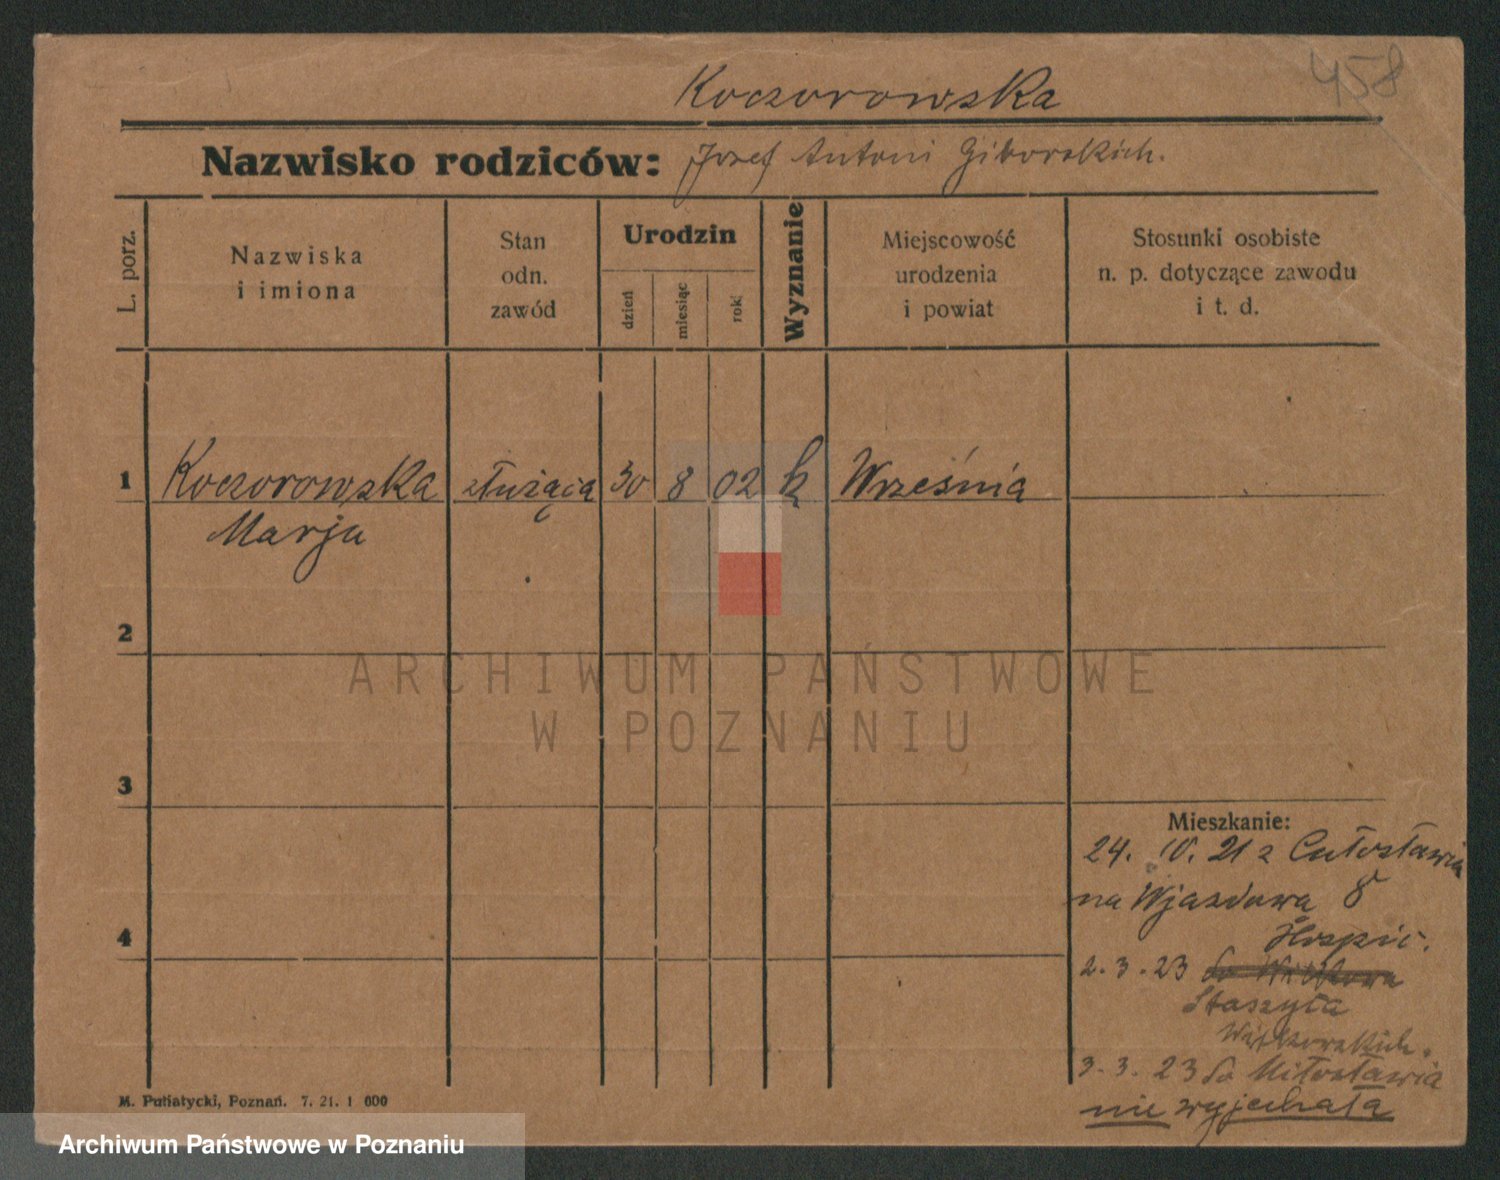 458
Koczorowska
Nazwisko rodziców: Jozef Antoni Giborskich.
L. porz.
Nazwiska
i imiona
Stan
odn.
zawód
Urodzin
dzień
miesiąc
rok
Wyznanie
Miejscowość
urodzenia
i powiat
Stosunki osobiste
n. p. dotyczące zawodu
i t. d.
1 Koczorowska służąca 30 8 02 k Września
Marja
2
ARCHIWUM PAŃSTWOWE
W POZNANIU
3
Mieszkanie:
24. IV. 21 z
na Wjazdowa 8
4
Hospic.
2.3.23 do
Staszyca
3.3.23 do Miłosławia
nie wyjechała
M. Putiatycki, Poznań. 7. 21. 1 000
Archiwum Państwowe w Poznaniu